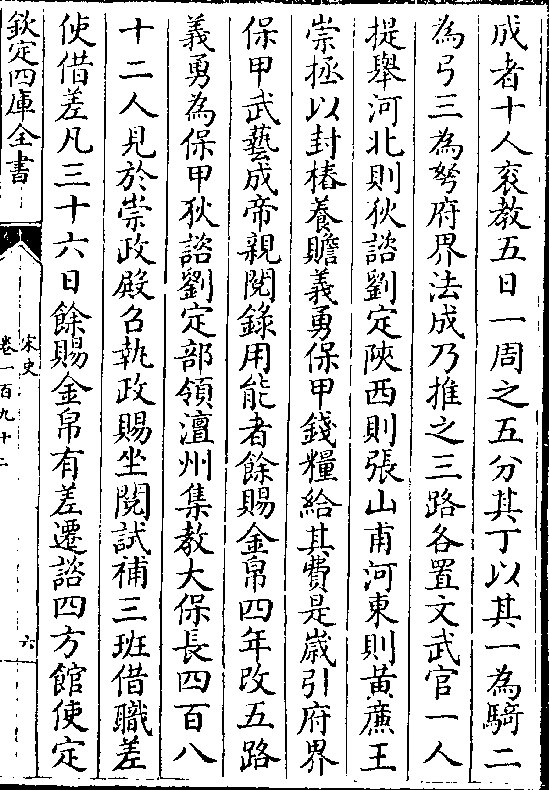 成者十人衮教五日一周之五分其丁以其一為騎二
為弓三為弩府界法成乃推之三路各置文武官一人
提舉河北則狄諮劉定陜西則張山甫河東則黃廉王
崇拯以封樁養贍義勇保甲錢糧給其費是歲引府界
保甲武藝成帝親閱錄用能者餘賜金帛四年改五路
義勇為保甲狄諮劉定部領澶州集教大保長四百八
十二人見於崇政殿召執政賜坐閱試補三班借職差
使借差凡三十六日餘賜金帛有差遷諮四方館使定
欽定四庫全書
宋史
卷一百九十二
六